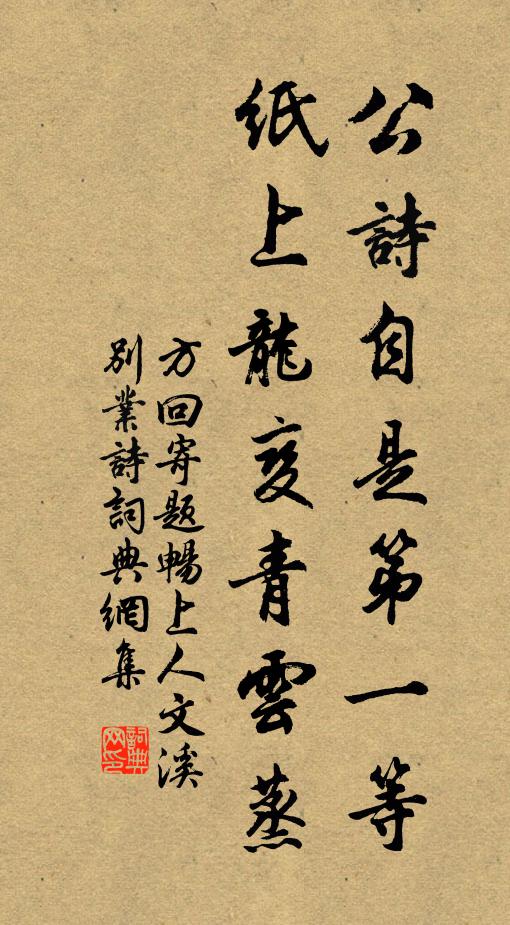 公詩自是第一等
紙上龍变青雲蒸
方回寄题暢上人文溪
别業詩詞典網集
詞典网印